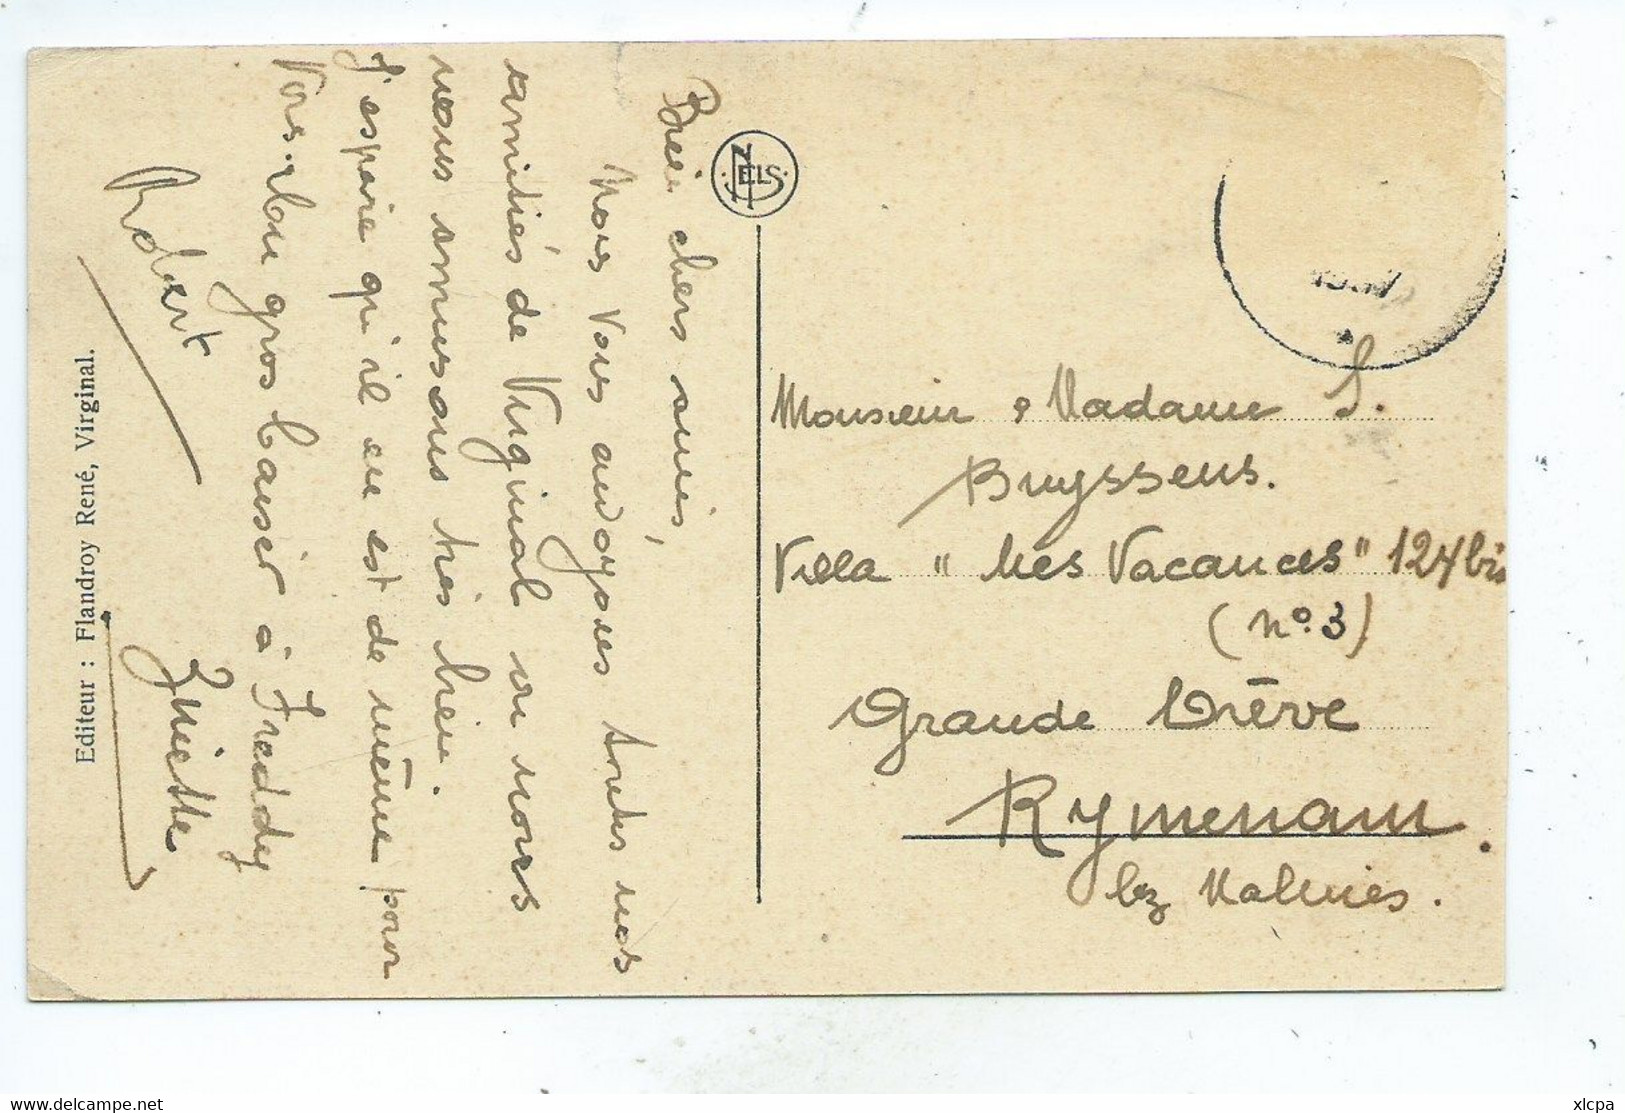 Bien chers amis,
Nous vous envoyons toutes nos
amitiés de Virginal où nous
nous amusons très bien.
J'espère qu'il en est de même pour
vous. Un gros baiser à Freddy
Robert
Editeur : Flandroy René, Virginal.
NELS
Monsieur & Madame S.
Buyssens.
Villa "Mes Vacances" 124bis
(n° 3)
Grande Drève
Rymenam.
lez Malines.
www.delcampe.net
xlcpa